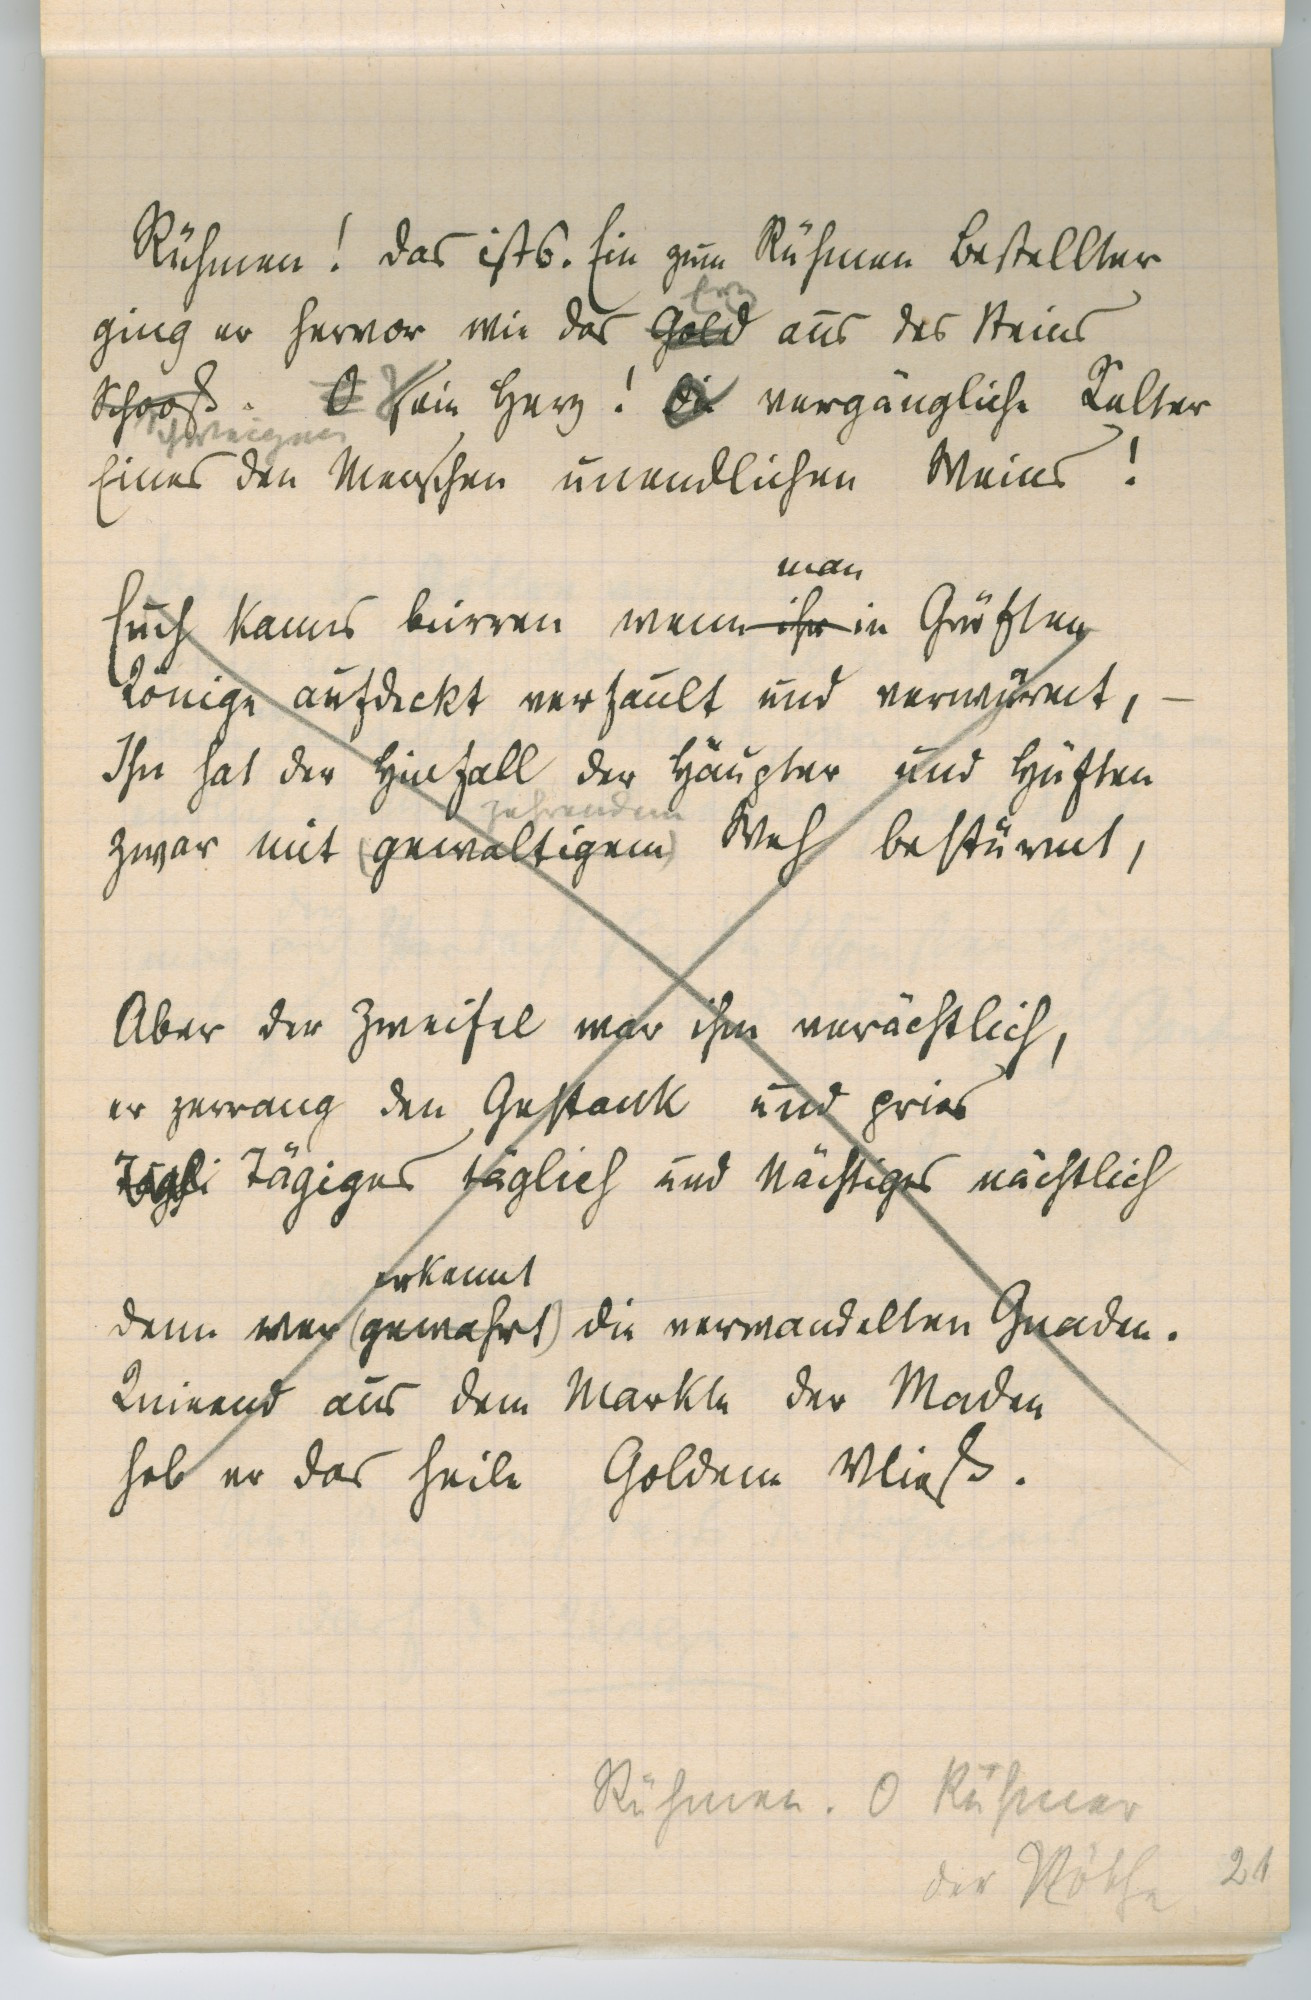 Rühmen! das ists. Ein zum Rühmen Bestellter
Erz
ging er hervor wie das Gold aus des Steins
Schooß. O sein Herz! die vergängliche Kelter
Schweigen
Eines den Menschen unendlichen Weins!
man
Euch kanns beirren wenn ihr in Grüften
Könige aufdeckt verfault und verwürmt, –
Ihn hat der Hinfall der Häupter und Hüften
zehrendem
zwar mit (gewaltigem) Weh bestürmt,
Aber der Zweifel war ihm verächtlich,
er zerrang den Gestank und pries
Tägli Tägiges täglich und Nächtiges nächtlich
erkennt
denn wer (gewahrt) die verwandelten Gnaden.
Knieend aus dem Markte der Maden
hob er das heile Goldene Vließ.
Rühmen. O Rühmer
der Röthe
21